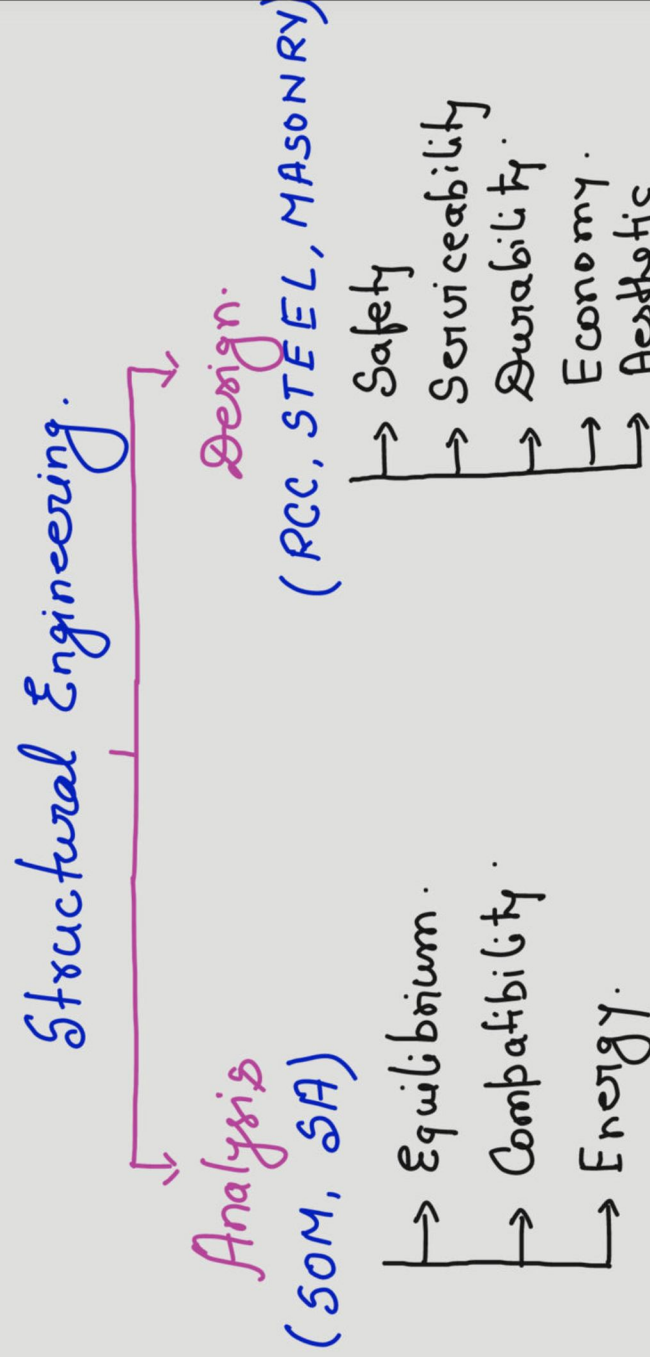 Structural Engineering.
Analysis
(SOM, SA)
Equilibrium.
Compatibility.
Energy.
Design.
(RCC, STEEL, MASONRY)
Safety
Serviceability
Durability.
Economy.
Aesthetic